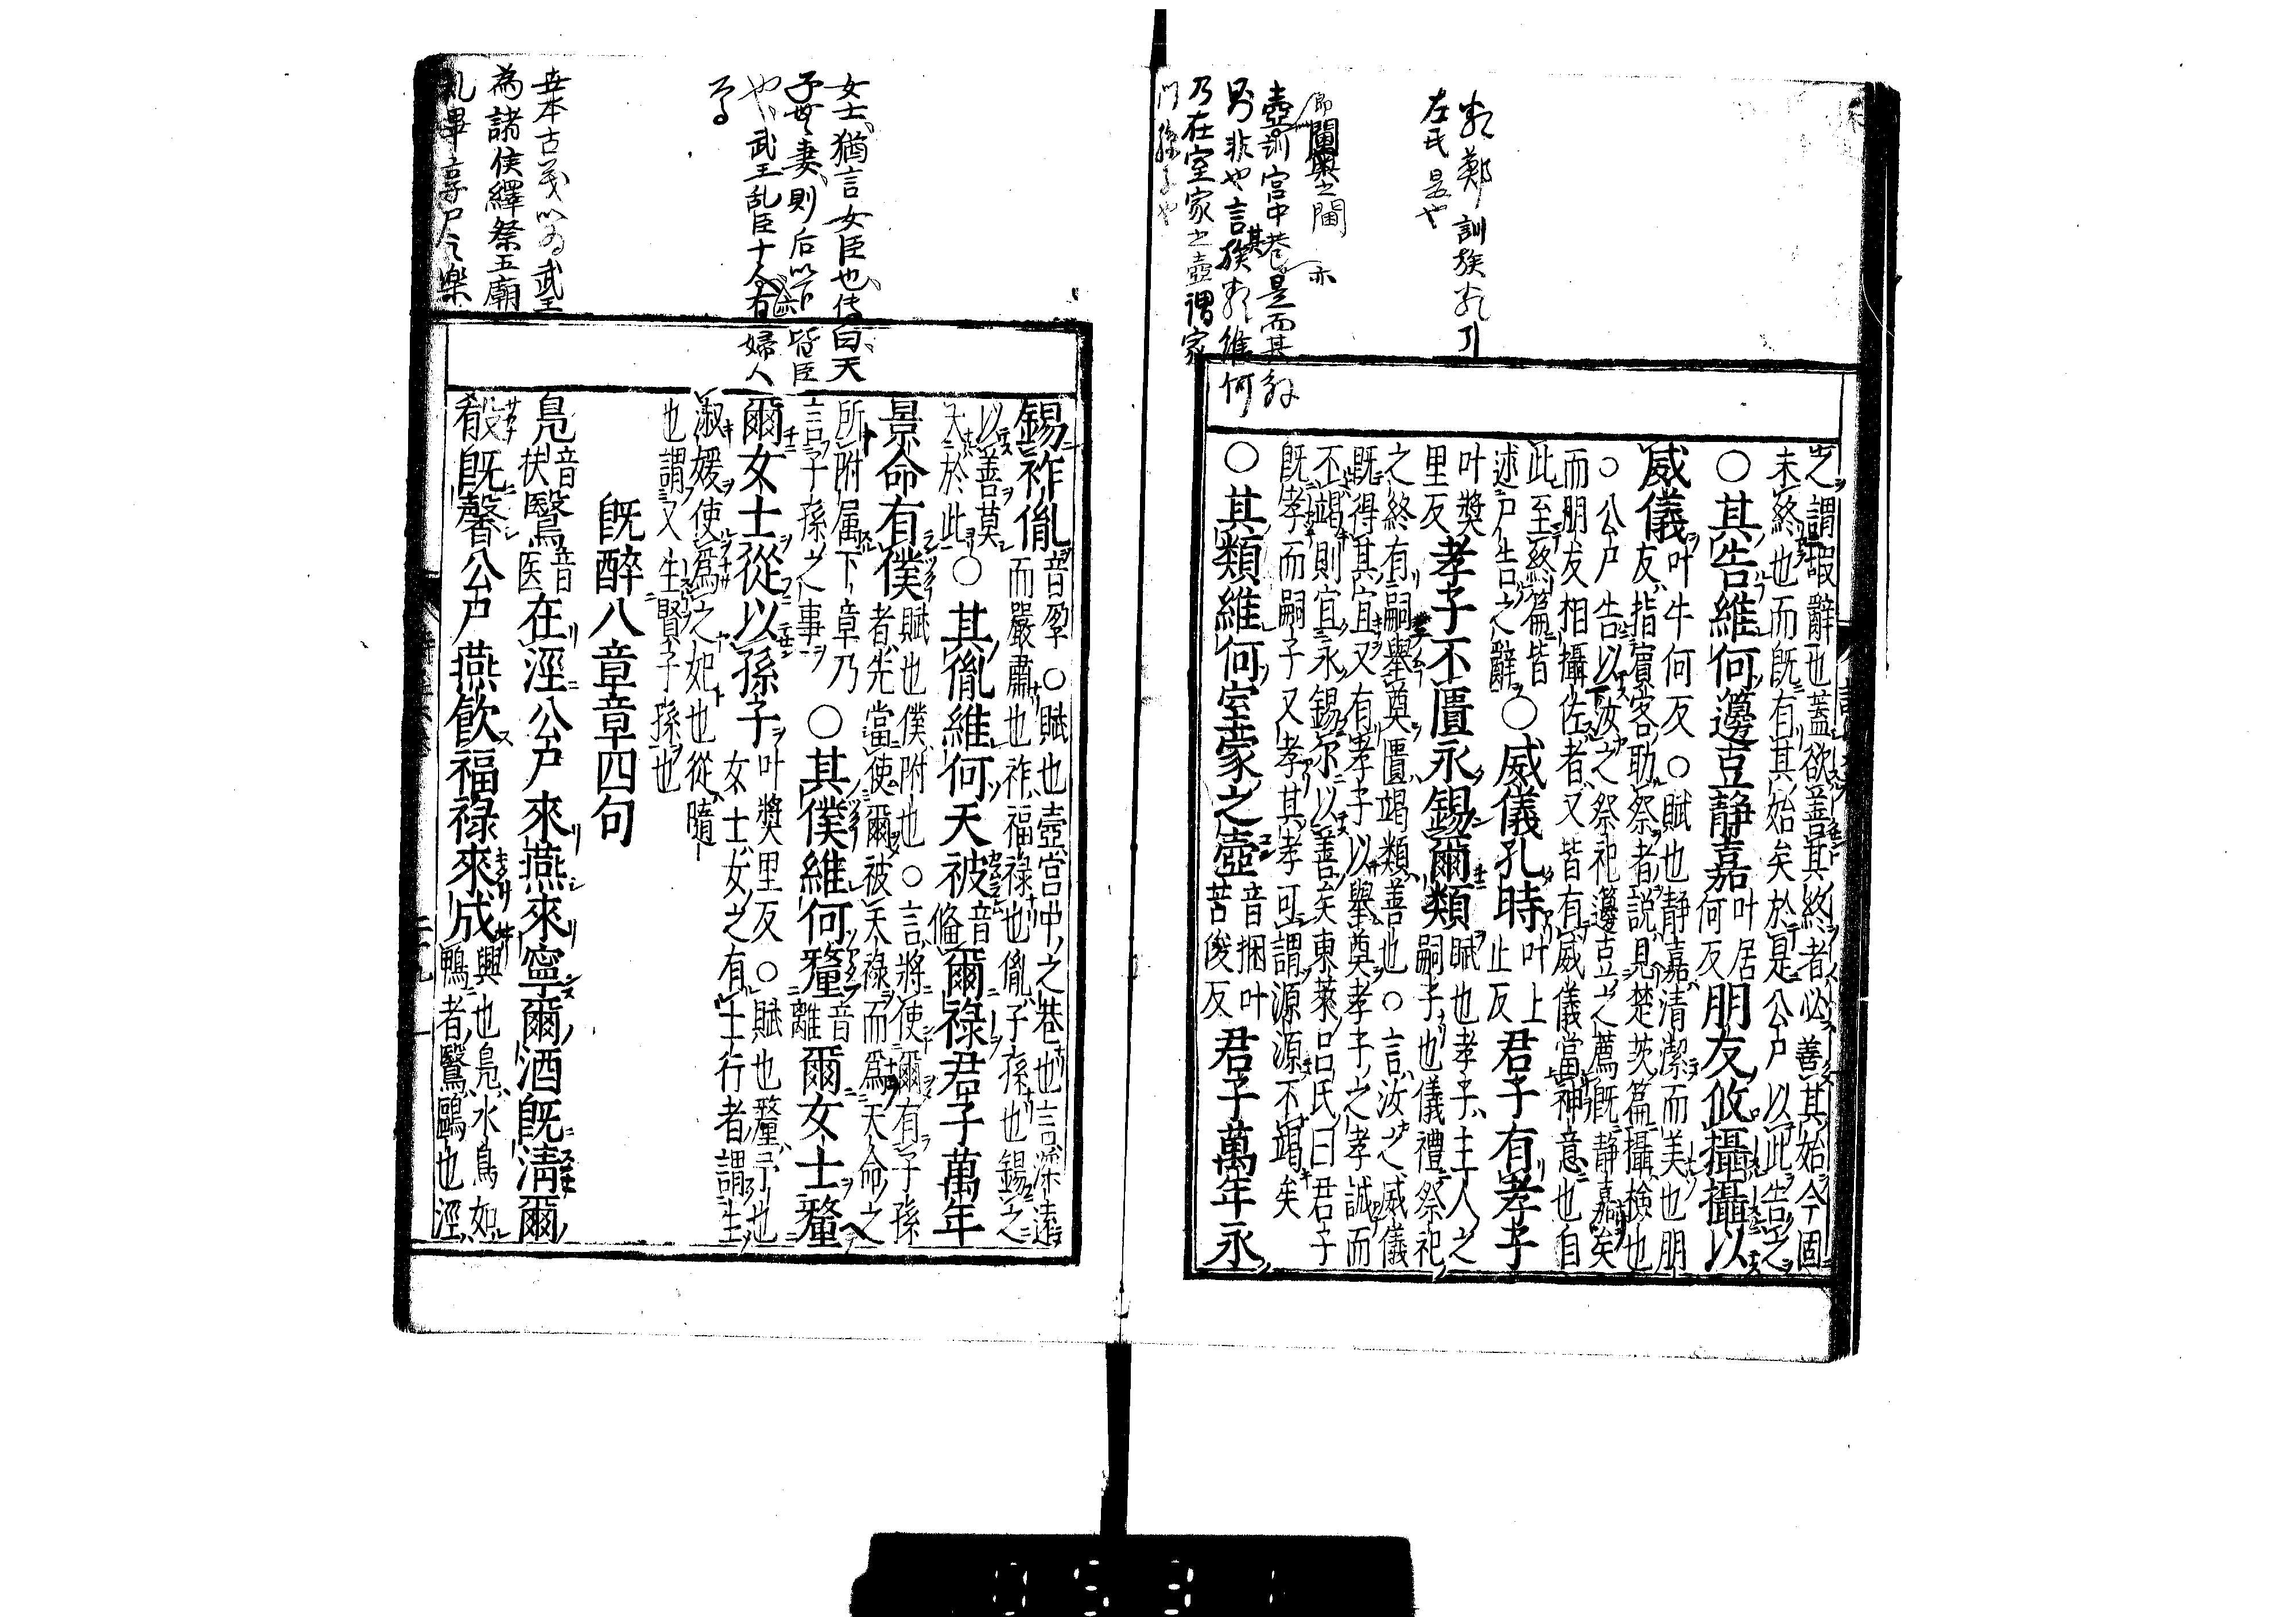 類鄭訓族類引
左氏是也
壼訓宮中巷是而其解
乃在室家之壼謂家
之謂嘏辭也蓋欲善其終者必善其始今固
未終也而既有其始矣於是公尸以此告之
○其告維何籩豆静嘉叶居何反朋友攸攝攝以
威儀叶牛何反○賦也静嘉清潔而美也朋
友指賓客助祭者説見楚茨篇攝檢也
○公尸告以汝之祭祀籩豆之薦既静嘉矣
而朋友相攝佐者又皆有威儀當神意也自
此至終篇皆
述尸告之辭○威儀孔時叶上止反君子有孝子
叶奬里反孝子不匱永錫爾類賦也孝子主人之
嗣子也儀禮祭祀
之終有嗣舉奠匱竭類善也○言汝之威儀
既得其宜又有孝子以舉奠孝子之孝誠而
不竭則宜永錫尓以善矣東萊呂氏曰君子
既孝而嗣子又孝其孝可謂源源不竭矣
○其類維何室家之壼音捆叶苦俊反君子萬年永
女士猶言女臣也傳曰天
子無妻則后以下皆臣
也武王乱臣十人有婦人
焉
為諸侯繹祭五廟
錫祚胤音孕○賦也壼宮中之巷也言深遠
而嚴肅也祚福禄也胤子孫也錫之
以善莫
大於此○其胤維何天被音備爾禄君子萬年
景命有僕賦也僕附也○言將使爾有子孫
者先當使爾被天禄而為天命之
所附属下章乃
言子孫之事○其僕維何釐音離爾女士釐
爾女士從以孫子叶奬里反○賦也釐予也
女士女之有士行者謂生
淑媛使為之妃也從隨
也謂又生賢子孫也
既醉八章章四句
鳧音扶鷖音医在涇公尸來燕來寧爾酒既清爾
殽既馨公尸燕飲福禄來成興也鳧水鳥如
鴨者鷖鷗也涇
0531